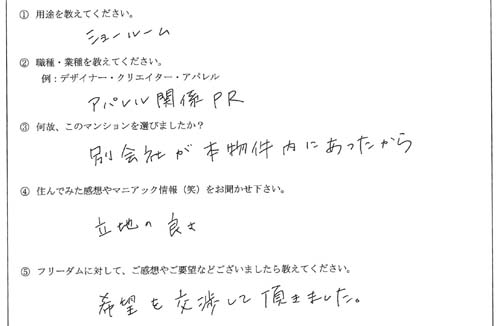 ① 用途を教えてください。
ショールーム
② 職種・業種を教えてください。
例：デザイナー・クリエイター・アパレル
アパレル関係PR
③ 何故、このマンションを選びましたか？
別会社が本物件内にあったから
④ 住んでみた感想やマニアック情報（笑）をお聞かせ下さい。
立地の良さ
⑤ フリーダムに対して、ご感想やご要望などございましたら教えてください。
希望を交渉して頂きました。